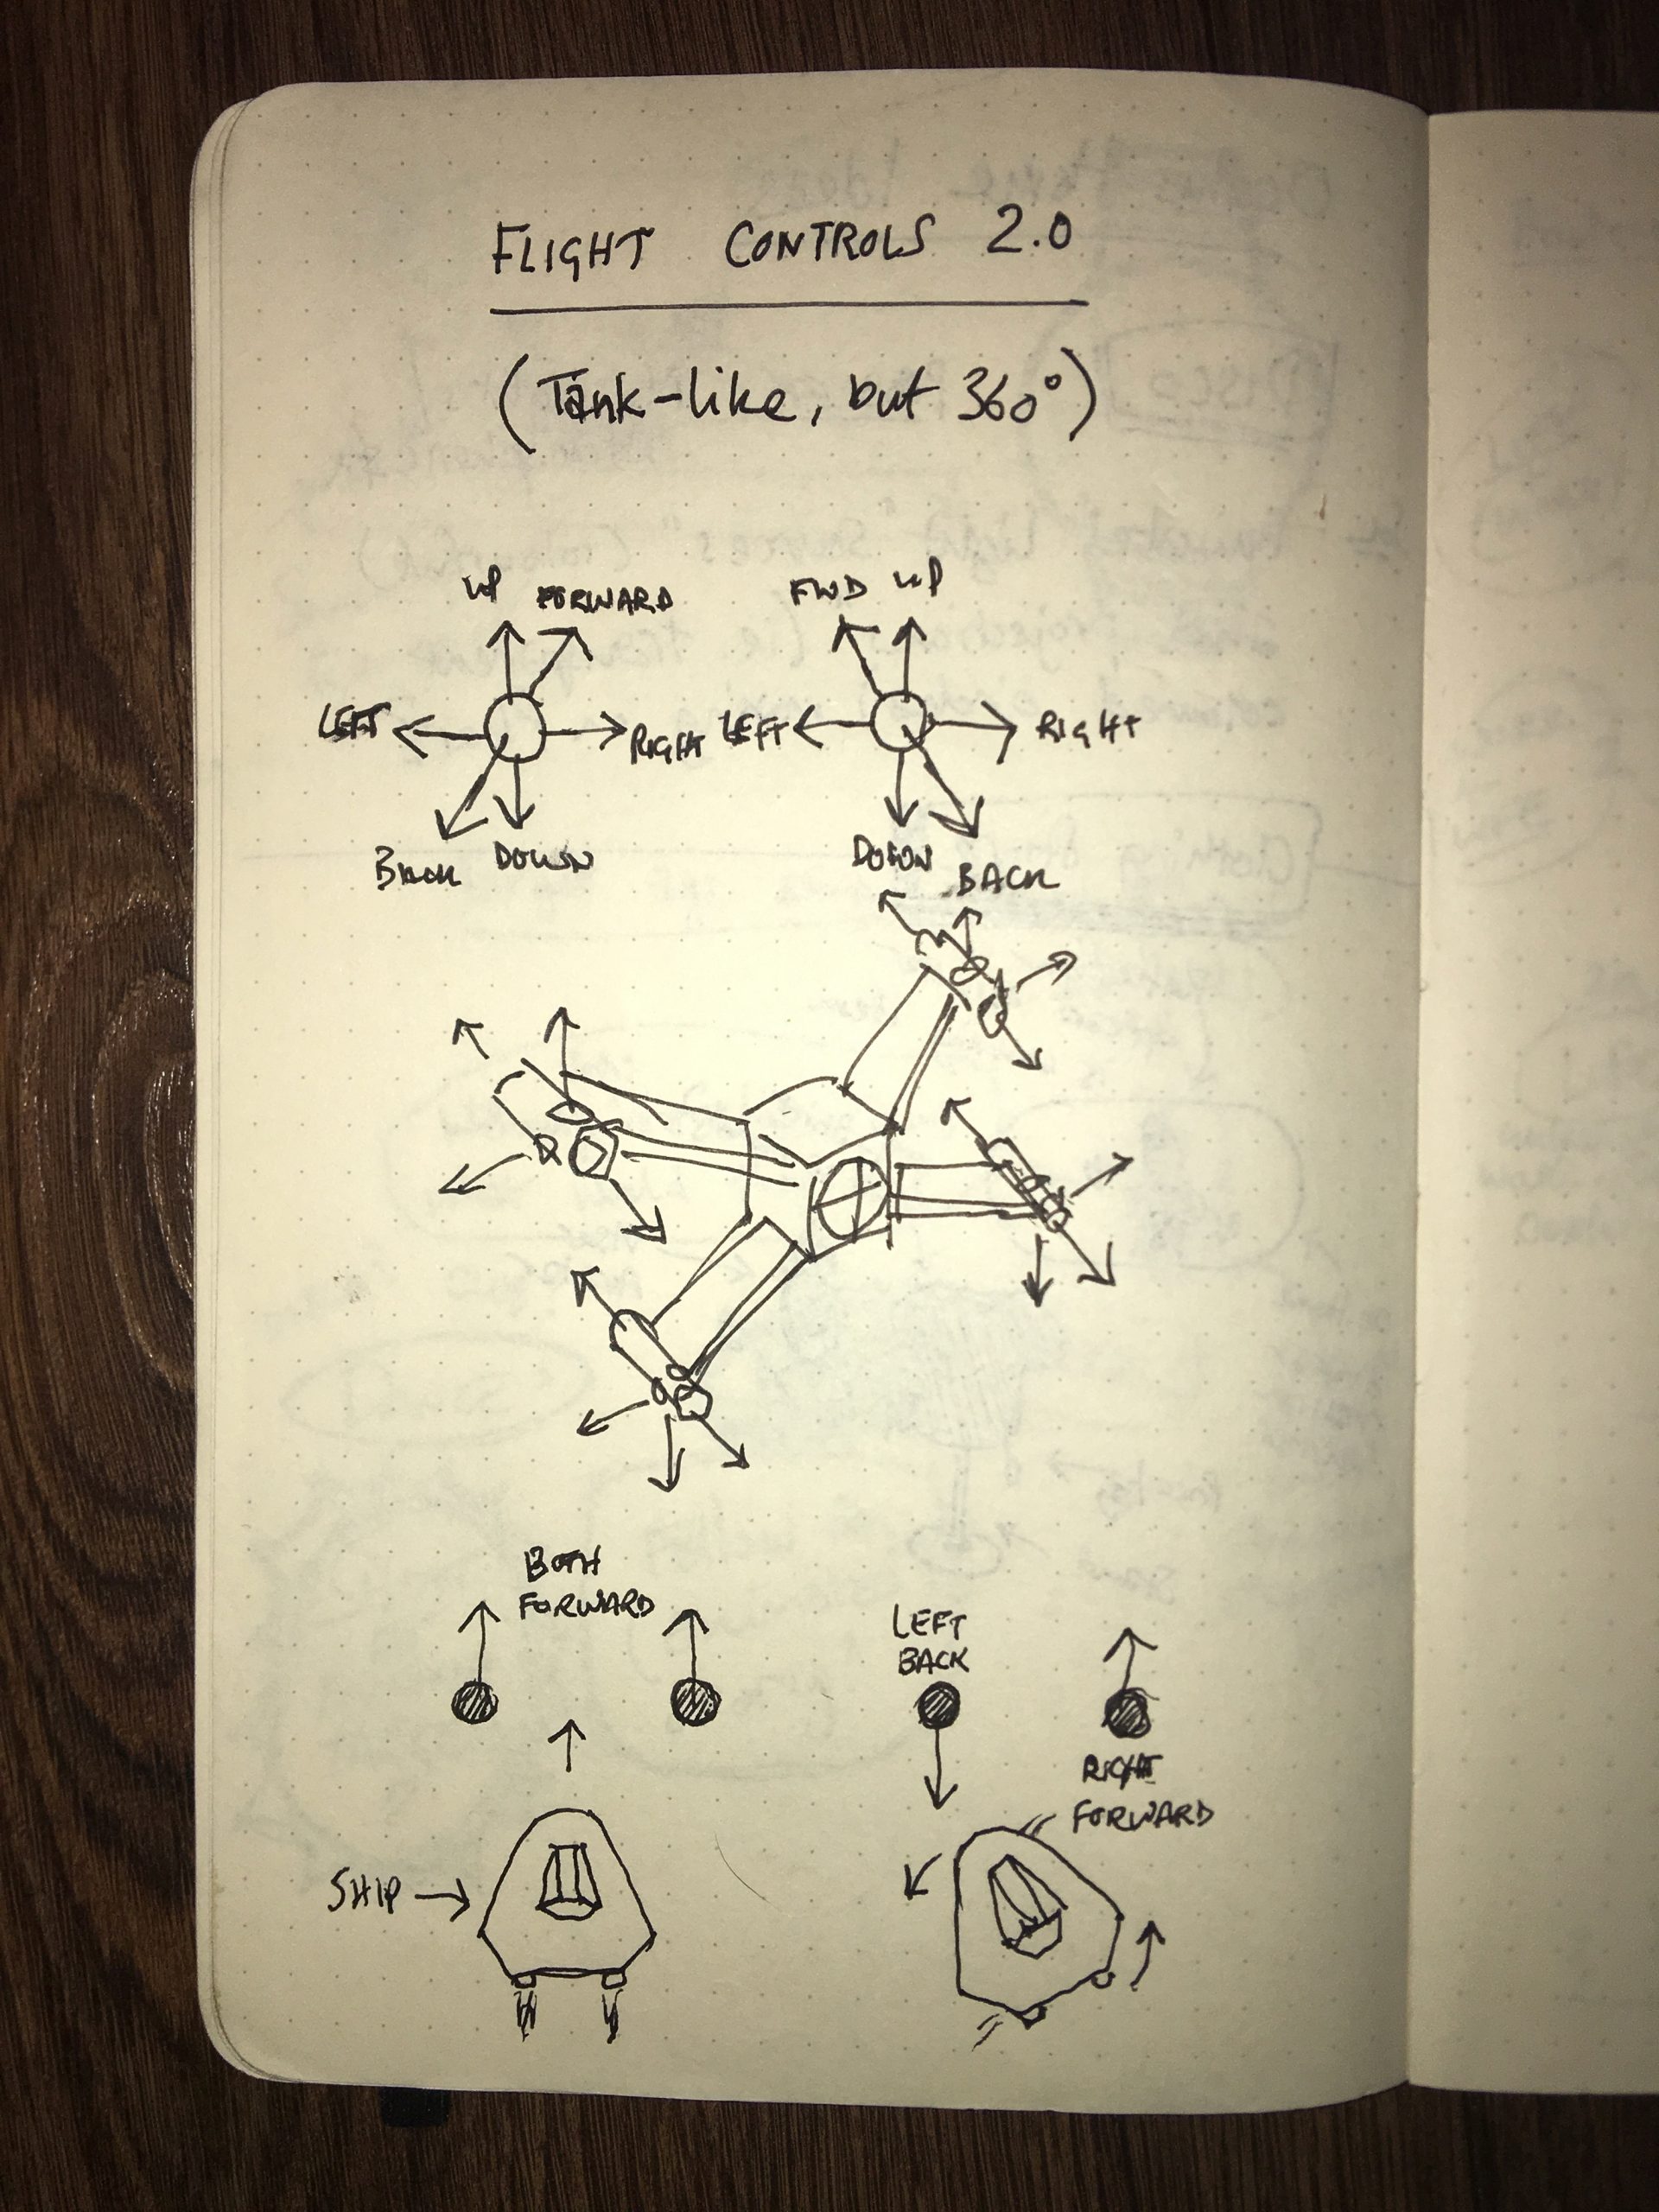 FLIGHT CONTROLS 2.0
(Tank-like, but 360°)
UP FORWARD
LEFT RIGHT
BACK DOWN
FWD UP
LEFT RIGHT
DOWN BACK
BOTH
FORWARD
LEFT
BACK
RIGHT
FORWARD
SHIP